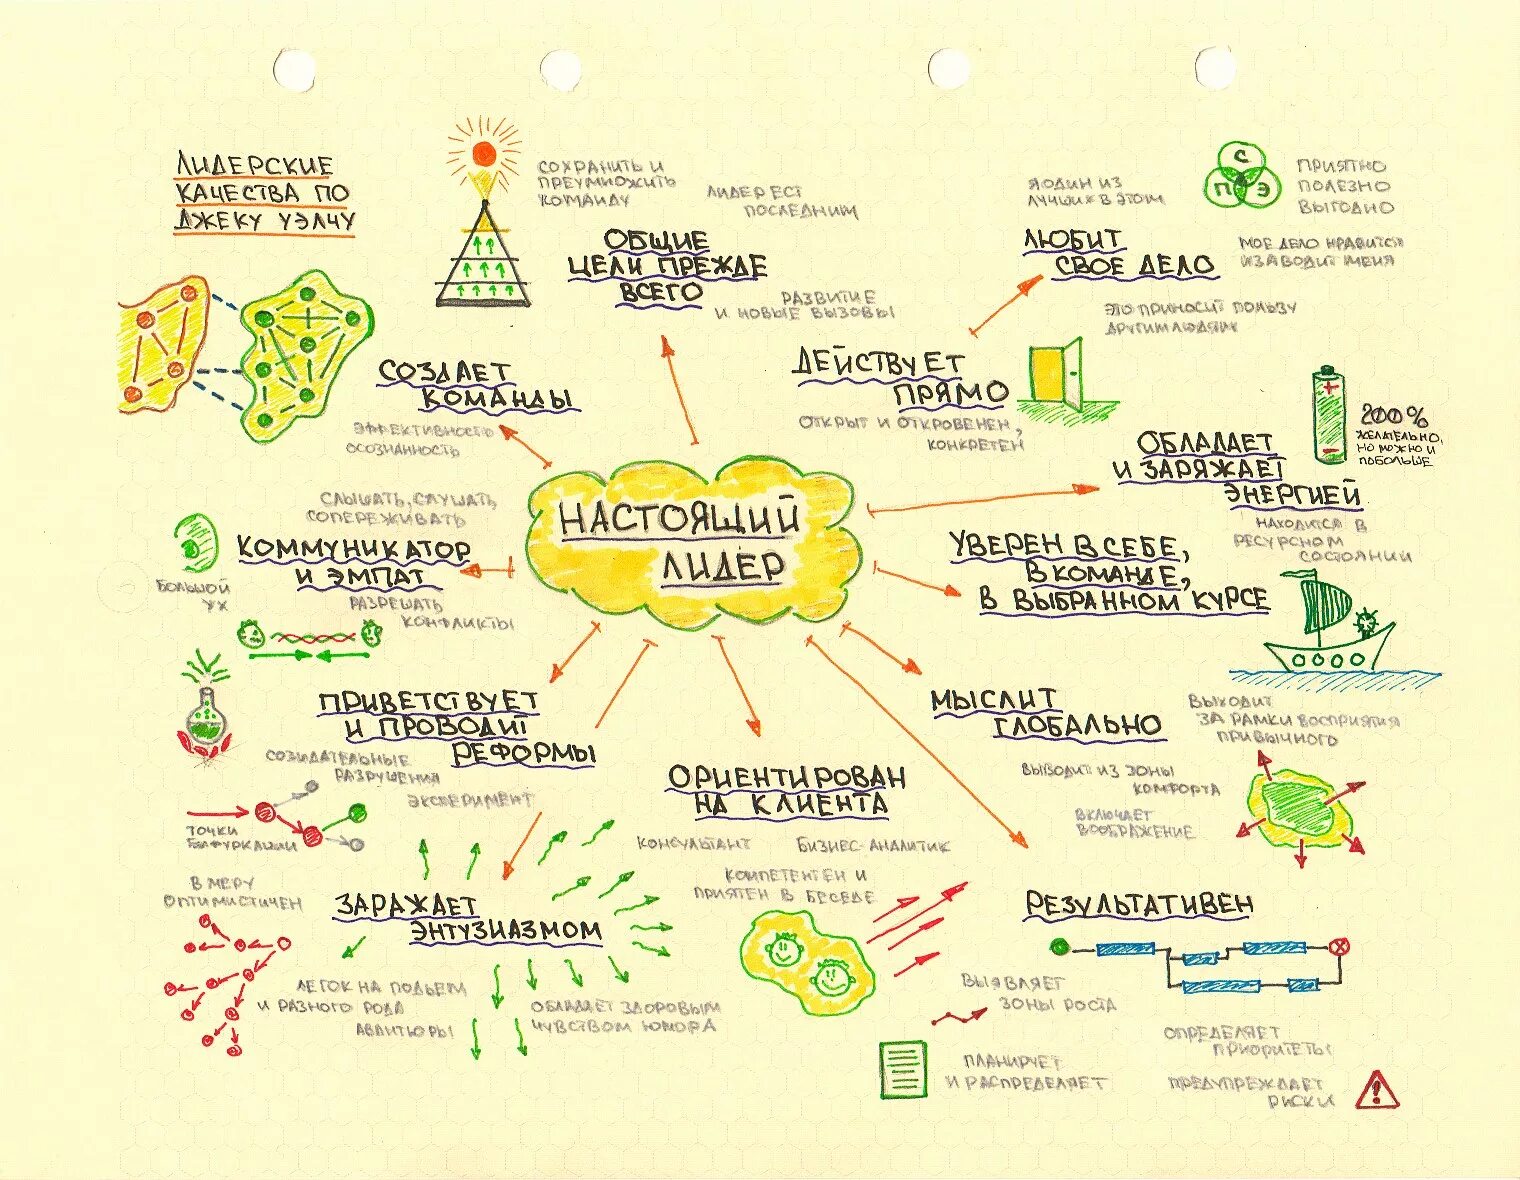 ЛИДЕРСКИЕ
КАЧЕСТВА ПО
ДЖЕКУ УЭЛЧУ
СОХРАНИТЬ И
ПРЕУМНОЖИТЬ
КОМАНДУ
ЛИДЕР ЕСТ
ПОСЛЕДНИМ
ОБЩИЕ
ЦЕЛИ ПРЕЖДЕ
ВСЕГО
РАЗВИТИЕ
И НОВЫЕ ВЫЗОВЫ
Я ОДИН ИЗ
ЛУЧШИХ В ЭТОМ
С
П Э
ПРИЯТНО
ПОЛЕЗНО
ВЫГОДНО
ЛЮБИТ
СВОЕ ДЕЛО
МОЕ ДЕЛО НРАВИТСЯ
И ЗАВОДИТ МЕНЯ
ЭТО ПРИНОСИТ ПОЛЬЗУ
ДРУГИМ ЛЮДЯМ
СОЗДАЕТ
КОМАНДЫ
ЭФФЕКТИВНОСТЬ
ОСОЗНАННОСТЬ
ДЕЙСТВУЕТ
ПРЯМО
ОТКРЫТ И ОТКРОВЕНЕН,
КОНКРЕТЕН
ОБЛАДАЕТ
И ЗАРЯЖАЕТ
ЭНЕРГИЕЙ
+
-
200%
ЖЕЛАТЕЛЬНО,
НО МОЖНО И
ПОБОЛЬШЕ
НАХОДИТСЯ В
РЕСУРСНОМ
СОСТОЯНИИ
НАСТОЯЩИЙ
ЛИДЕР
СЛЫШАТЬ, СЛУШАТЬ,
СОПЕРЕЖИВАТЬ
КОММУНИКАТОР
И ЭМПАТ
БОЛЬШОЙ
УХ
РАЗРЕШАТЬ
КОНФЛИКТЫ
УВЕРЕН В СЕБЕ,
В КОМАНДЕ,
В ВЫБРАННОМ КУРСЕ
ПРИВЕТСТВУЕТ
И ПРОВОДИТ
РЕФОРМЫ
СОЗИДАТЕЛЬНЫЕ
РАЗРУШЕНИЯ
ЭКСПЕРИМЕНТ
ТОЧКИ
БИФУРКАЦИИ
МЫСЛИТ
ГЛОБАЛЬНО
ВЫХОДИТ
ЗА РАМКИ ВОСПРИЯТИЯ
ПРИВЫЧНОГО
ВЫВОДИТ ИЗ ЗОНЫ
КОМФОРТА
ВКЛЮЧАЕТ
ВООБРАЖЕНИЕ
ОРИЕНТИРОВАН
НА КЛИЕНТА
КОНСУЛЬТАНТ
БИЗНЕС-АНАЛИТИК
КОМПЕТЕНТЕН И
ПРИЯТЕН В БЕСЕДЕ
В МЕРУ
ОПТИМИСТИЧЕН
ЗАРАЖАЕТ
ЭНТУЗИАЗМОМ
ЛЕГОК НА ПОДЪЕМ
И РАЗНОГО РОДА
АВАНТЮРЫ
ОБЛАДАЕТ ЗДОРОВЫМ
ЧУВСТВОМ ЮМОРА
РЕЗУЛЬТАТИВЕН
ВЫЯВЛЯЕТ
ЗОНЫ РОСТА
ПЛАНИРУЕТ
И РАСПРЕДЕЛЯЕТ
ОПРЕДЕЛЯЕТ
ПРИОРИТЕТЫ
ПРЕДУПРЕЖДАЕТ
РИСКИ
!